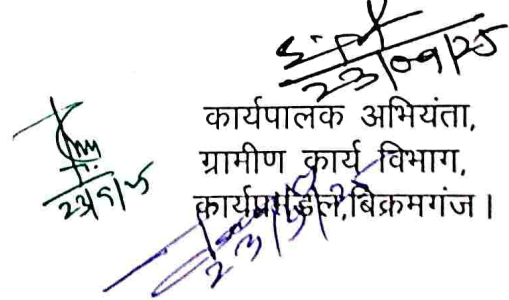 23/09/25
कार्यपालक अभियंता,
ग्रामीण कार्य विभाग,
23/9/25
कार्यप्रमंडल,बिक्रमगंज।
23/9/25